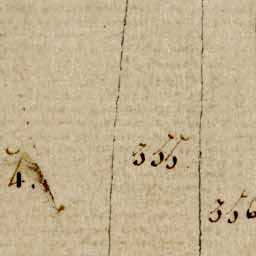 4.
355
356